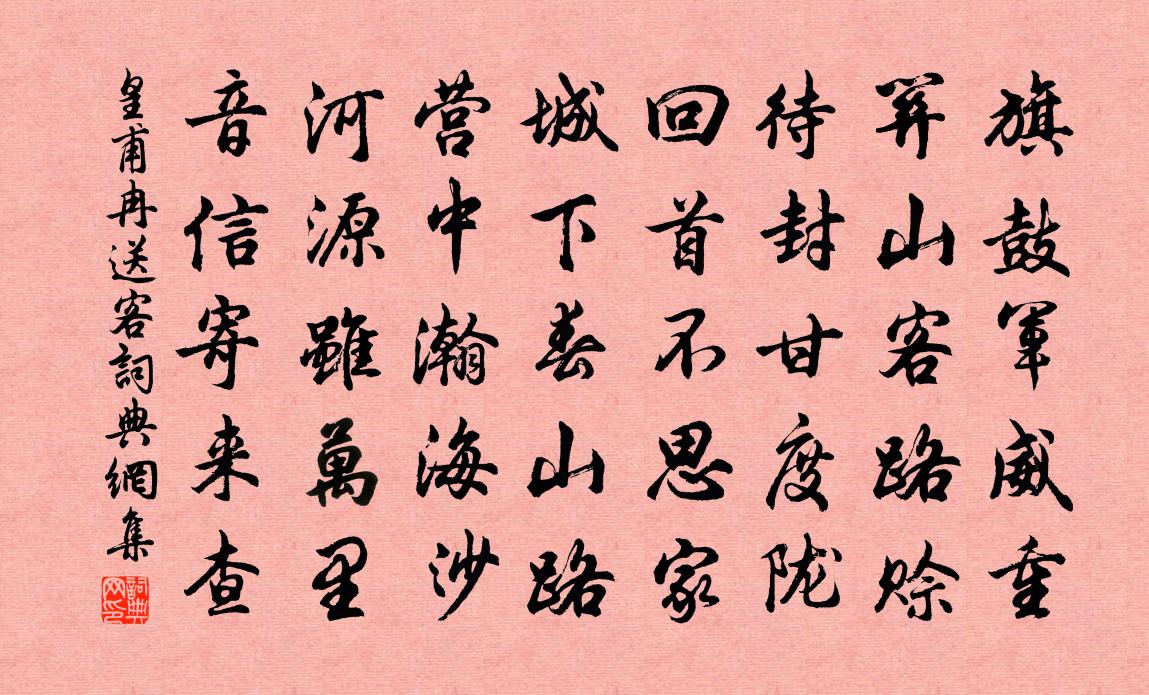 旗鼓軍威重
関山客路赊
待封甘度陇
回首不思家
城下春山路
营中瀚海沙
河源雖萬里
音信寄来查
皇甫冉送客詞典網集
詞典网印